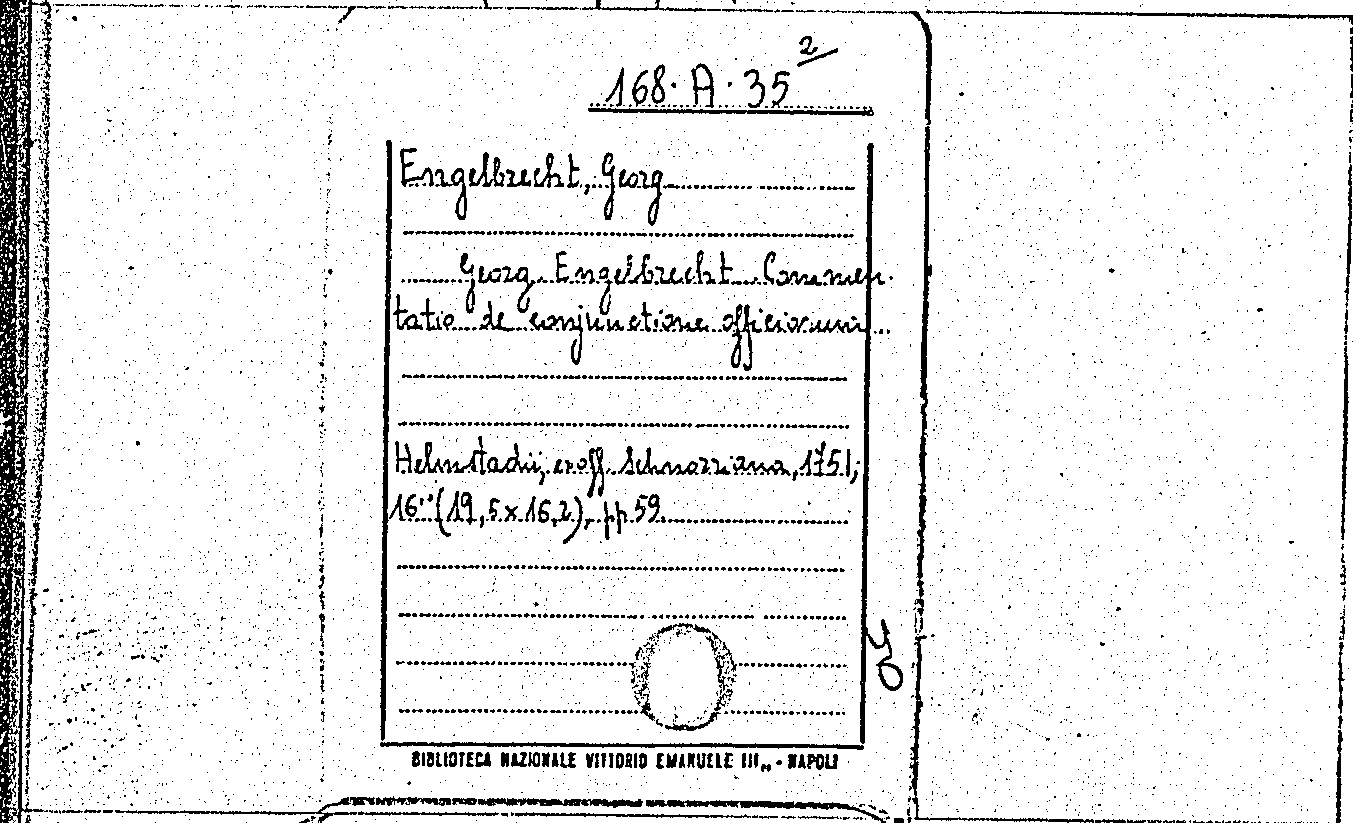 168. A. 35 2
Engelbrecht, Georg
Georg Engelbrecht Commen-
tatio de conjunctione officiorum...
Helmstadii, ex off. Schnorriana, 1751;
16" (19,5 x 16,2), pp 59.
50
BIBLIOTECA NAZIONALE VITTORIO EMANUELE III„ - NAPOLI